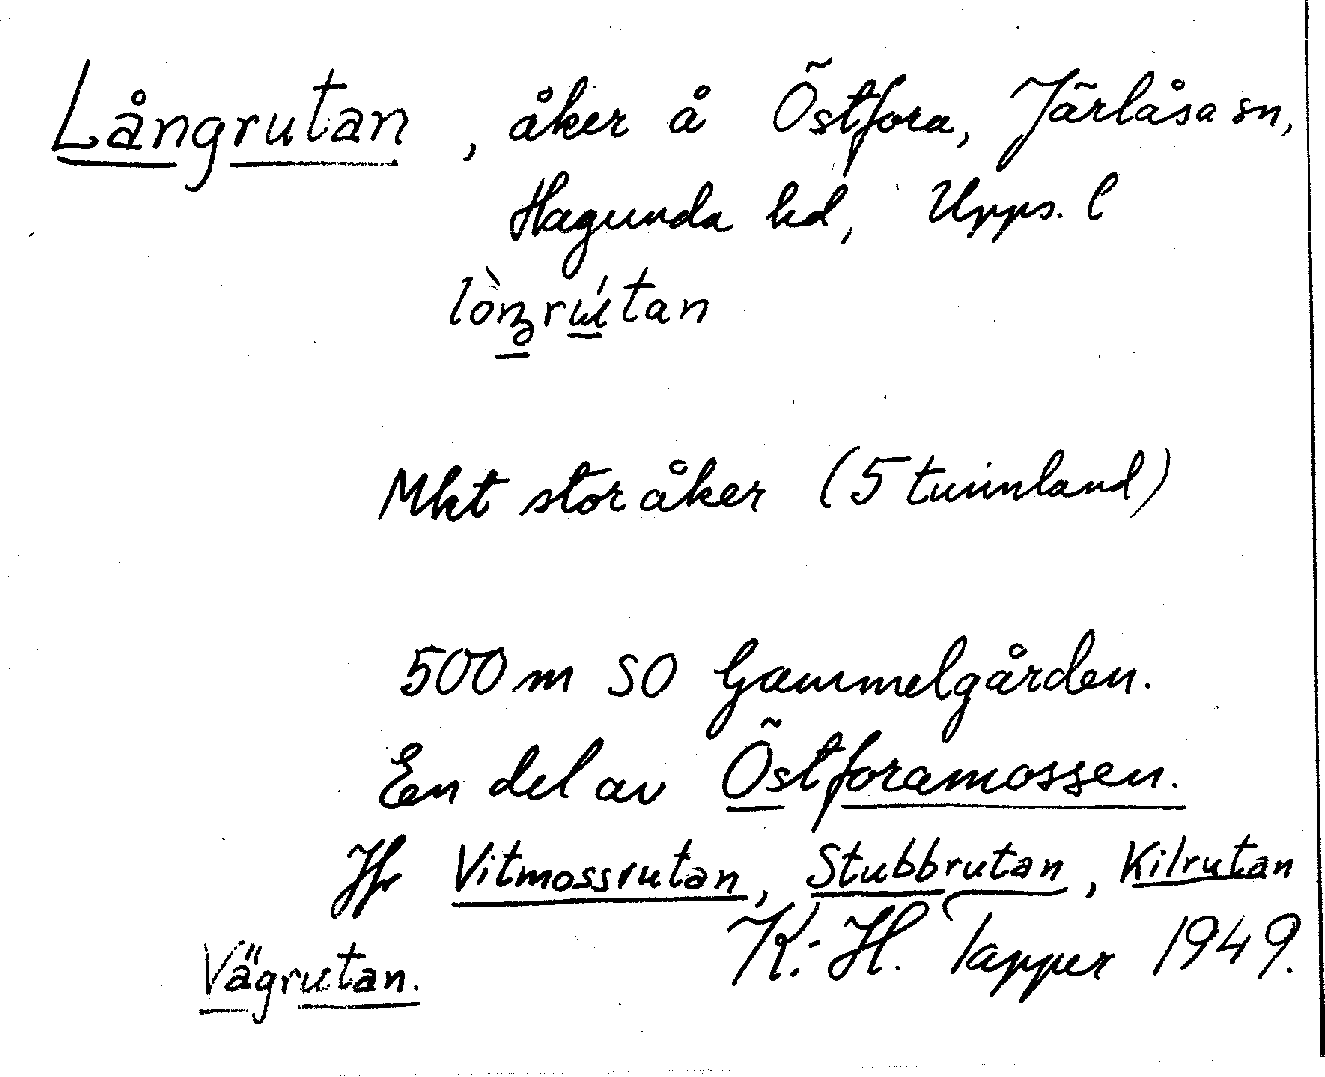 Långrutan, åker å Östfora, Järlåsa sn,
Hagunda hd, Upps. l
Mkt stor åker (5 tunnland)
500 m SO Gammelgården.
En del av Östforamossen.
Jfr Vitmossrutan, Stubbrutan, Kilrutan
Vägrutan.
K.-H. Tapper 1949.